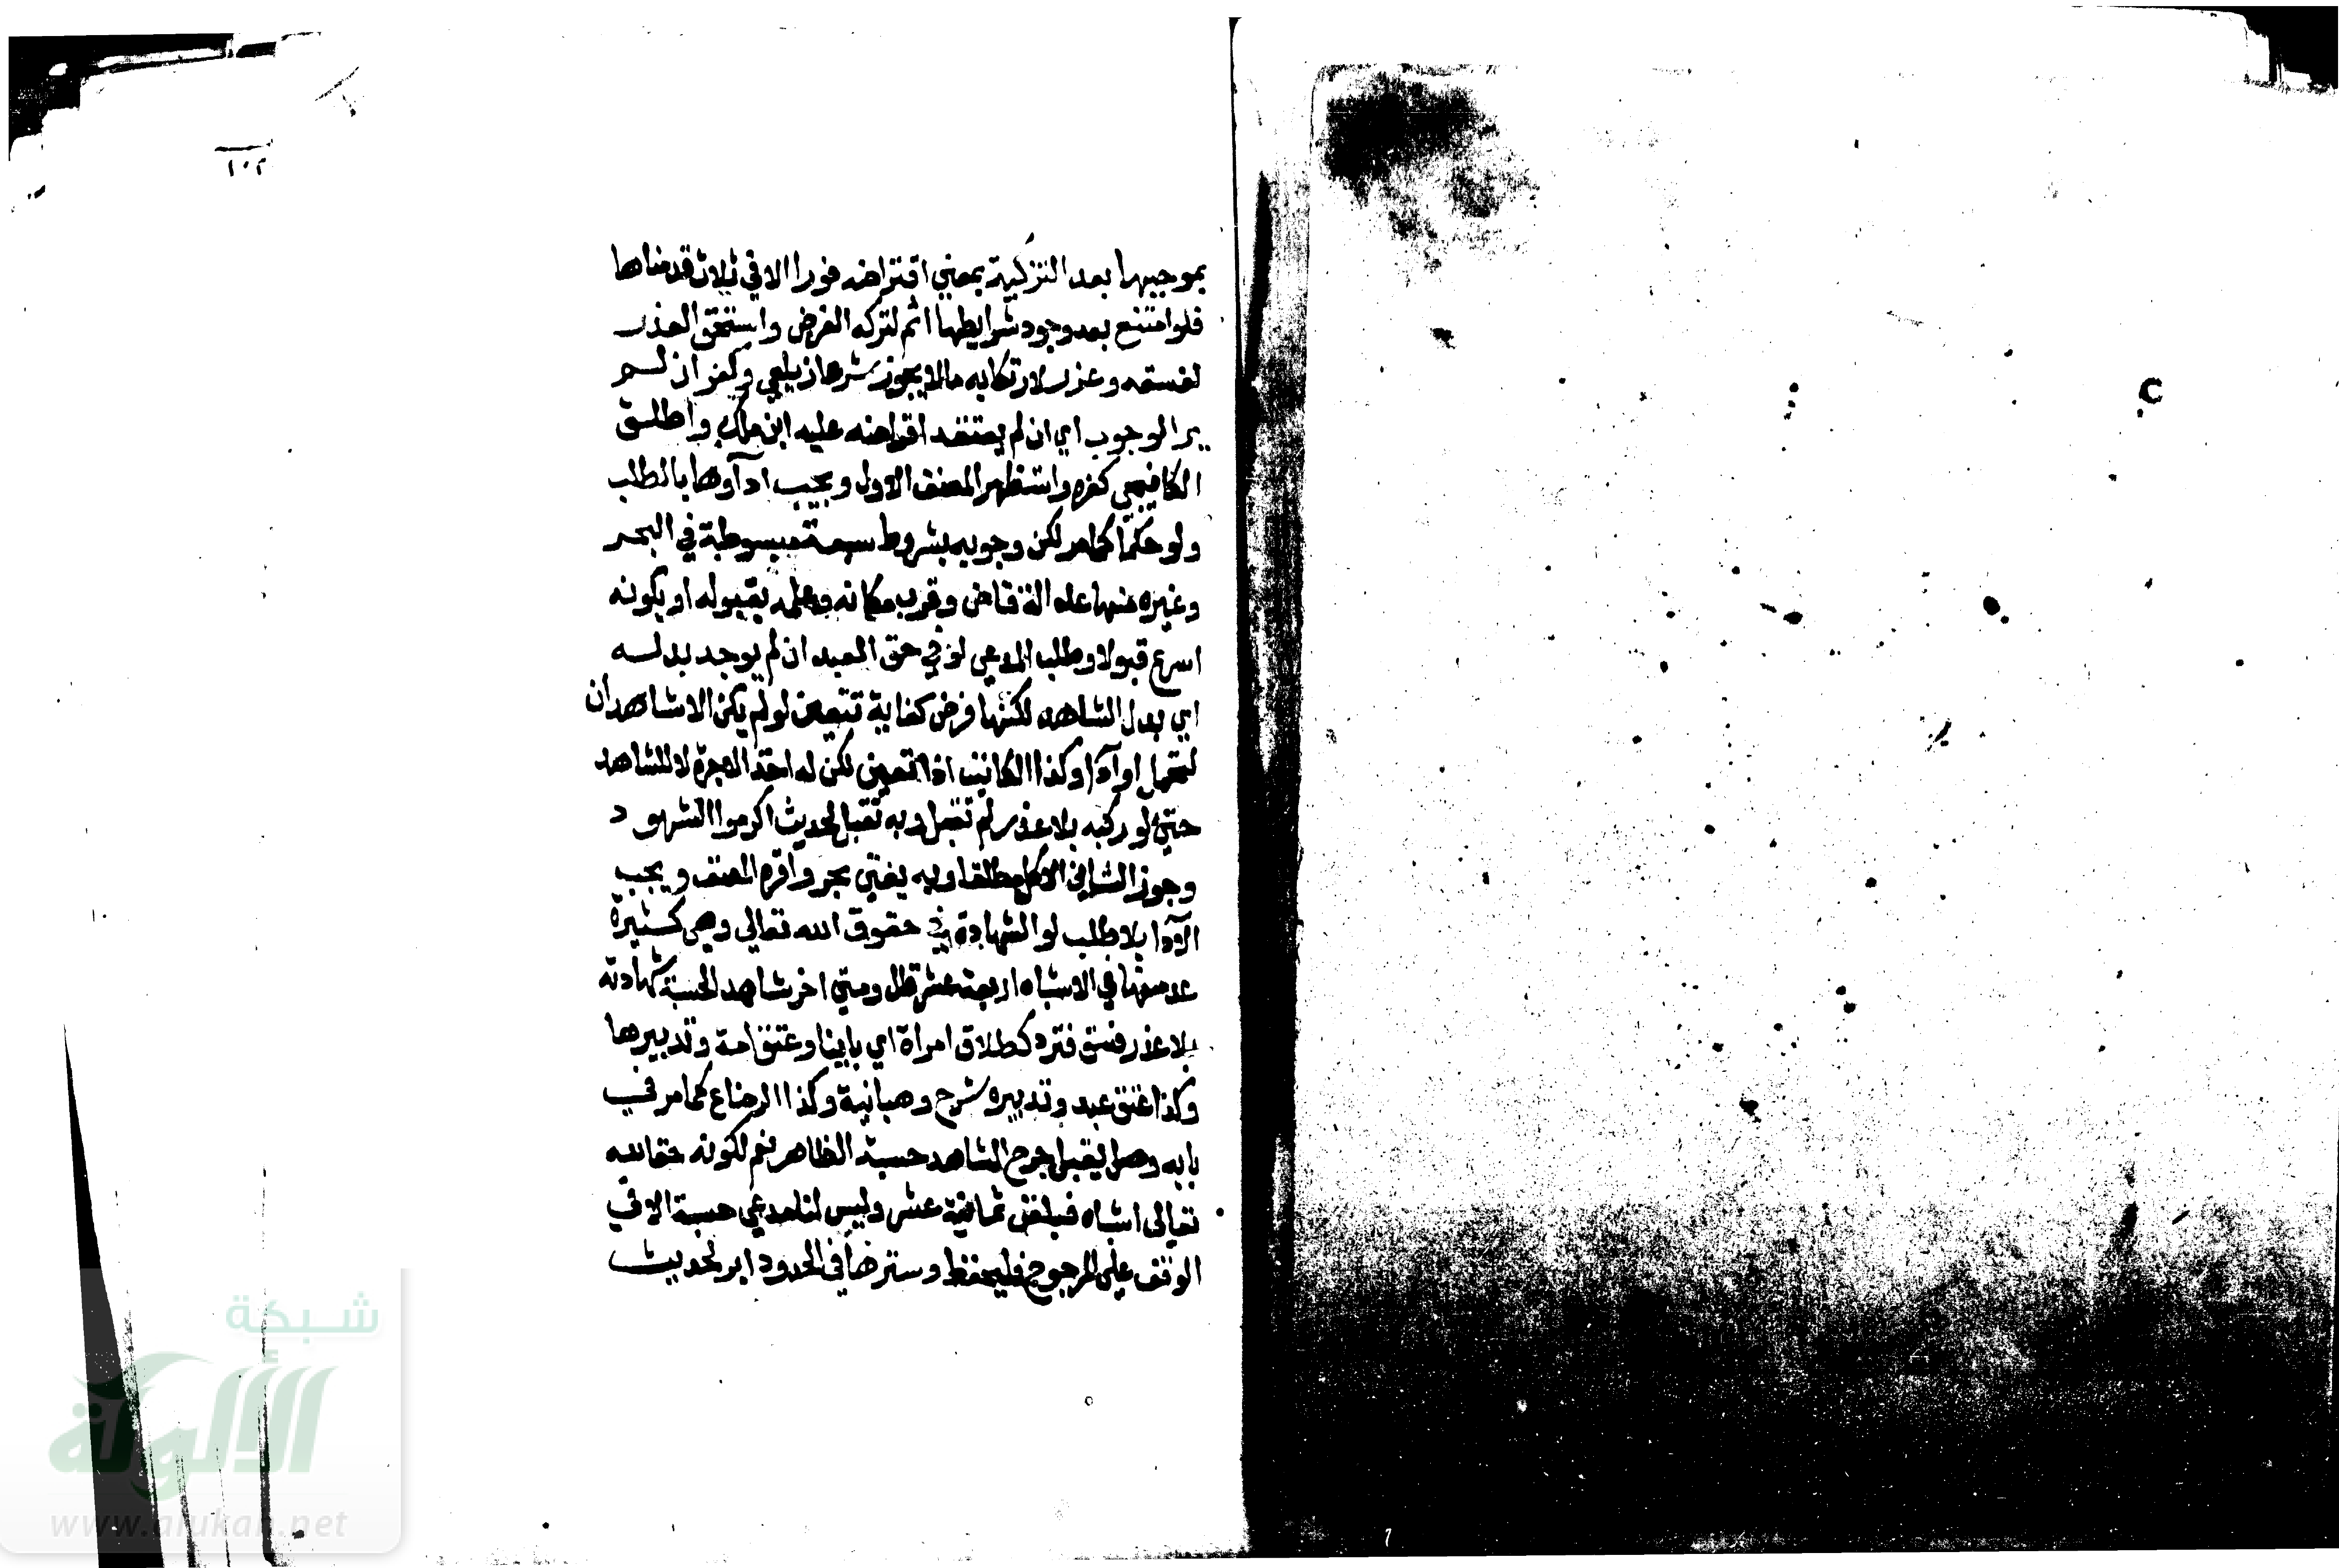 ١٠٢
بموجبها بعد التزكية بمعني افتراضه فورا الا في ثلاث قدمناها
فلو امتنع بعد وجود شرايطها اثم لتركه الفرض واستحق العذر
لفسقه وعزر لارتكابه مالا يجوز شرعا زيلعي وكفر ان لم
ير الوجوب اي ان لم يعتقد افتراضه عليه ابن ملك واطلق
الكافيجي كفره واستظهر المصنف الاول ويجب ادآوها بالطلب
ولو حكما كما مر لكن وجوبه بشروط سبعة مبسوطة في البحر
وغيره منها عدالة قاض وقرب مكانه وعلمه بقبوله او بكونه
اسرع قبولا وطلب المدعي لو في حق العبد ان لم يوجد بدله
اي بدل الشاهد لكنها فرض كفاية تتعين لو لم يكن الا شاهدان
لتحمل او آدا وكذا الكاتب اذا تعين لكن له اخذ الاجرة لا للشاهد
حتي لو ركبه بلا عذر لم تقبل وبه تقبل لحديث اكرموا الشهود
وجوز الثاني الاكل مطلقا وبه يفتي بحر واقره المصنف ويجب
الآدا بلا طلب لو الشهادة في حقوق الله تعالي وهي كثيرة
عد منها في الاشباه اربعة عشر قال ومتي اخر شاهد الحسبة شهادته
بلا عذر فسق فترد كطلاق امراة اي باينا وعتق امة وتدبيرها
وكذا عتق عبد وتدبيره شرح وهبانية وكذا الرضاع كما مر في
بابه وهل يقبل جرح الشاهد حسبة الظاهر نعم لكونه حقا لله
تعالي اشباه فبلغن ثمانية عشر وليس لنا مدعي حسبة الا في
الوقف علي المرجوح فليحفظ وسترها في الحدود ابر لحديث
شبكة
الألوكة
www.alukah.net